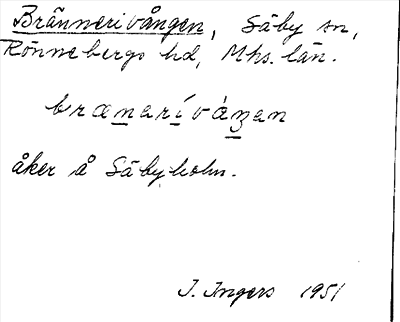 Brännerivången, Säby sn,
Rönnebergs hd, Mhs. län.
åker å Säbyholm.
I. Ingers 1951